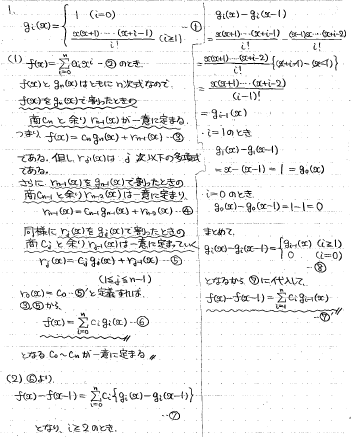 1.
g_i(x) = { 1 (i=0)
x(x+1)・・・・(x+i-1) / i! (i≧1) ―①
(1) f(x) = Σ_{i=0}^{n} a_i x^i ―② のとき
f(x)と g_n(x) はともに n次式なので
f(x)を g_n(x) で割ったときの
商 C_n と余り r_{n-1}(x) が一意に定まる.
つまり f(x) = C_n g_n(x) + r_{n-1}(x) ―③
である. 但し r_j(x) は j 次以下の多項式
である.
さらに r_{n-1}(x) を g_{n-1}(x) で割ったときの
商 C_{n-1} と余り r_{n-2}(x) は一意に定まり.
r_{n-1}(x) = C_{n-1} g_{n-1}(x) + r_{n-2}(x) ―④
同様に r_j(x) を g_j(x) で割ったときの
商 C_j と余り r_{j-1}(x) は一意に定まっていく
r_j(x) = C_j g_j(x) + r_{j-1}(x) ―⑤
(1≦j≦n-1)
r_0(x) = C_0 ―⑤' と定義すれば.
③,⑤から.
f(x) = Σ_{i=0}^{n} C_i g_i(x) ―⑥
となる C_0〜C_n が一意に定まる 〃
(2) ⑥より.
f(x) - f(x-1) = Σ_{i=0}^{n} C_i { g_i(x) - g_i(x-1) }
―⑦
となり, i≧2 のとき.
g_i(x) - g_i(x-1)
= x(x+1)・・・・(x+i-1) / i! - (x-1)x・・・(x+i-2) / i!
= x(x+1)・・・・(x+i-2) / i! {(x+i-1) - (x-1)}
= x(x+1)・・・・(x+i-2) / (i-1)!
= g_{i-1}(x)
・i=1 のとき
g_1(x) - g_1(x-1)
= x - (x-1) = 1 = g_0(x)
・i=0 のとき.
g_0(x) - g_0(x-1) = 1-1 = 0
まとめて.
g_i(x) - g_i(x-1) = { g_{i-1}(x) (i≧1)
0 (i=0)
―⑧
となるから ⑦に代入して.
f(x) - f(x-1) = Σ_{i=1}^{n} C_i g_{i-1}(x)